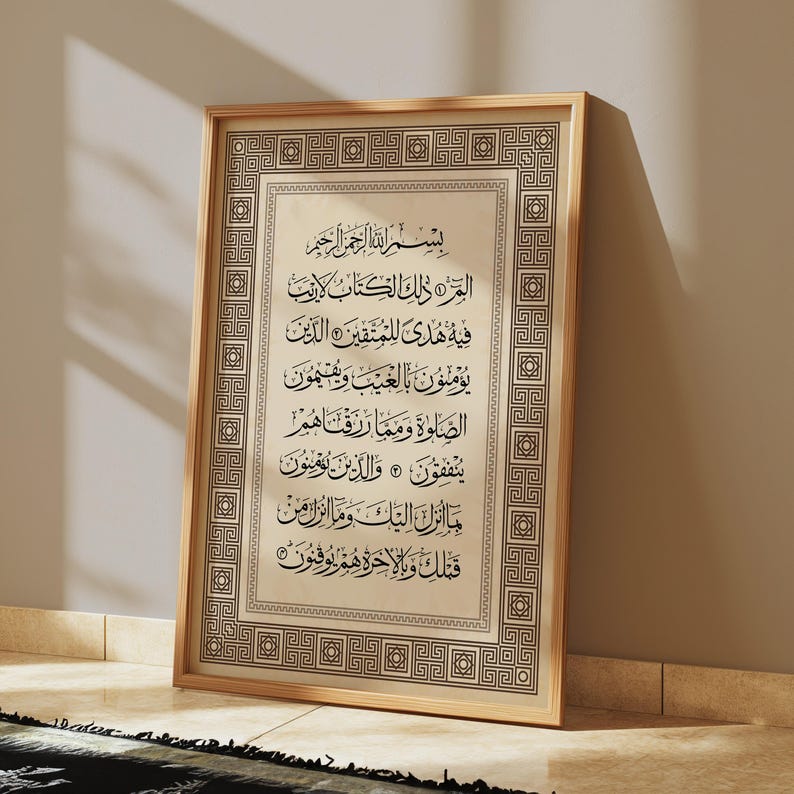 بِسْمِ اللهِ الرَّحْمٰنِ الرَّحِيْمِ
الٓمّٓ ۝١ ذٰلِكَ الْكِتَابُ لَا رَيْبَ
فِيْهِ هُدًى لِلْمُتَّقِيْنَ ۝٢ الَّذِيْنَ
يُؤْمِنُوْنَ بِالْغَيْبِ وَيُقِيْمُوْنَ
الصَّلٰوةَ وَمِمَّا رَزَقْنَاهُمْ
يُنْفِقُوْنَ ۝٣ وَالَّذِيْنَ يُؤْمِنُوْنَ
بِمَا اُنْزِلَ اِلَيْكَ وَمَا اُنْزِلَ مِنْ
قَبْلِكَ وَبِالْاٰخِرَةِ هُمْ يُوْقِنُوْنَ ۝٤